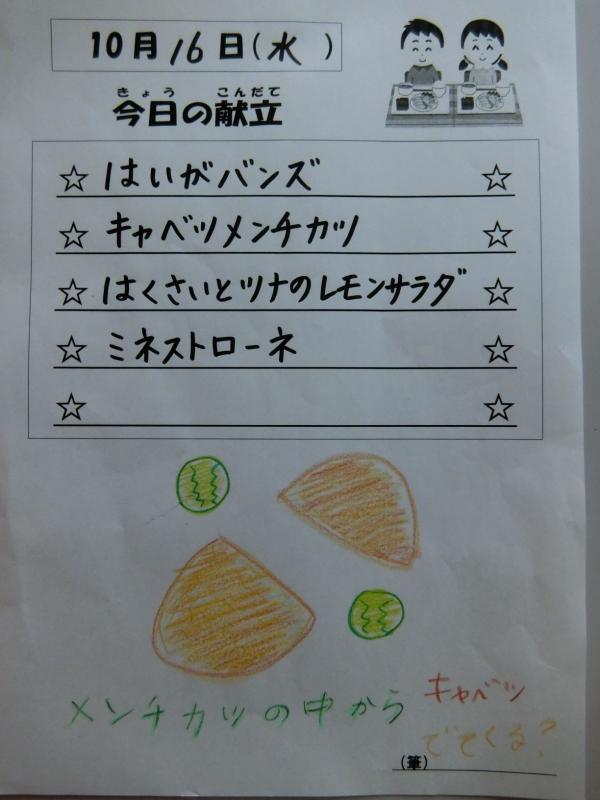 10月16日(水 )
きょう こんだて
今日の献立
☆ はいがバンズ ☆
☆ キャベツメンチカツ ☆
☆ はくさいとツナのレモンサラダ ☆
☆ ミネストローネ ☆
☆ ☆
メンチカツの中から キャベツ
でてくる?
(筆)